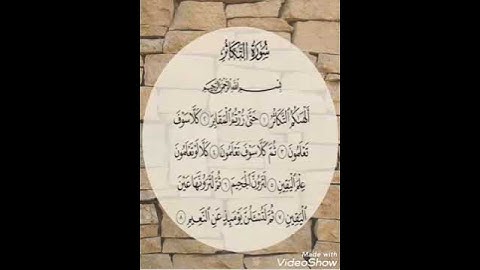 سُورَةُ التَّكَاثُرِ
بِسْمِ اللَّهِ الرَّحْمَٰنِ الرَّحِيمِ
أَلْهَىٰكُمُ ٱلتَّكَاثُرُ ١ حَتَّىٰ زُرْتُمُ ٱلْمَقَابِرَ ٢ كَلَّا سَوْفَ
تَعْلَمُونَ ٣ ثُمَّ كَلَّا سَوْفَ تَعْلَمُونَ ٤ كَلَّا لَوْ تَعْلَمُونَ
عِلْمَ ٱلْيَقِينِ ٥ لَتَرَوُنَّ ٱلْجَحِيمَ ٦ ثُمَّ لَتَرَوُنَّهَا عَيْنَ
ٱلْيَقِينِ ٧ ثُمَّ لَتُسْـَٔلُنَّ يَوْمَئِذٍ عَنِ ٱلنَّعِيمِ ٨
Made with
VideoShow